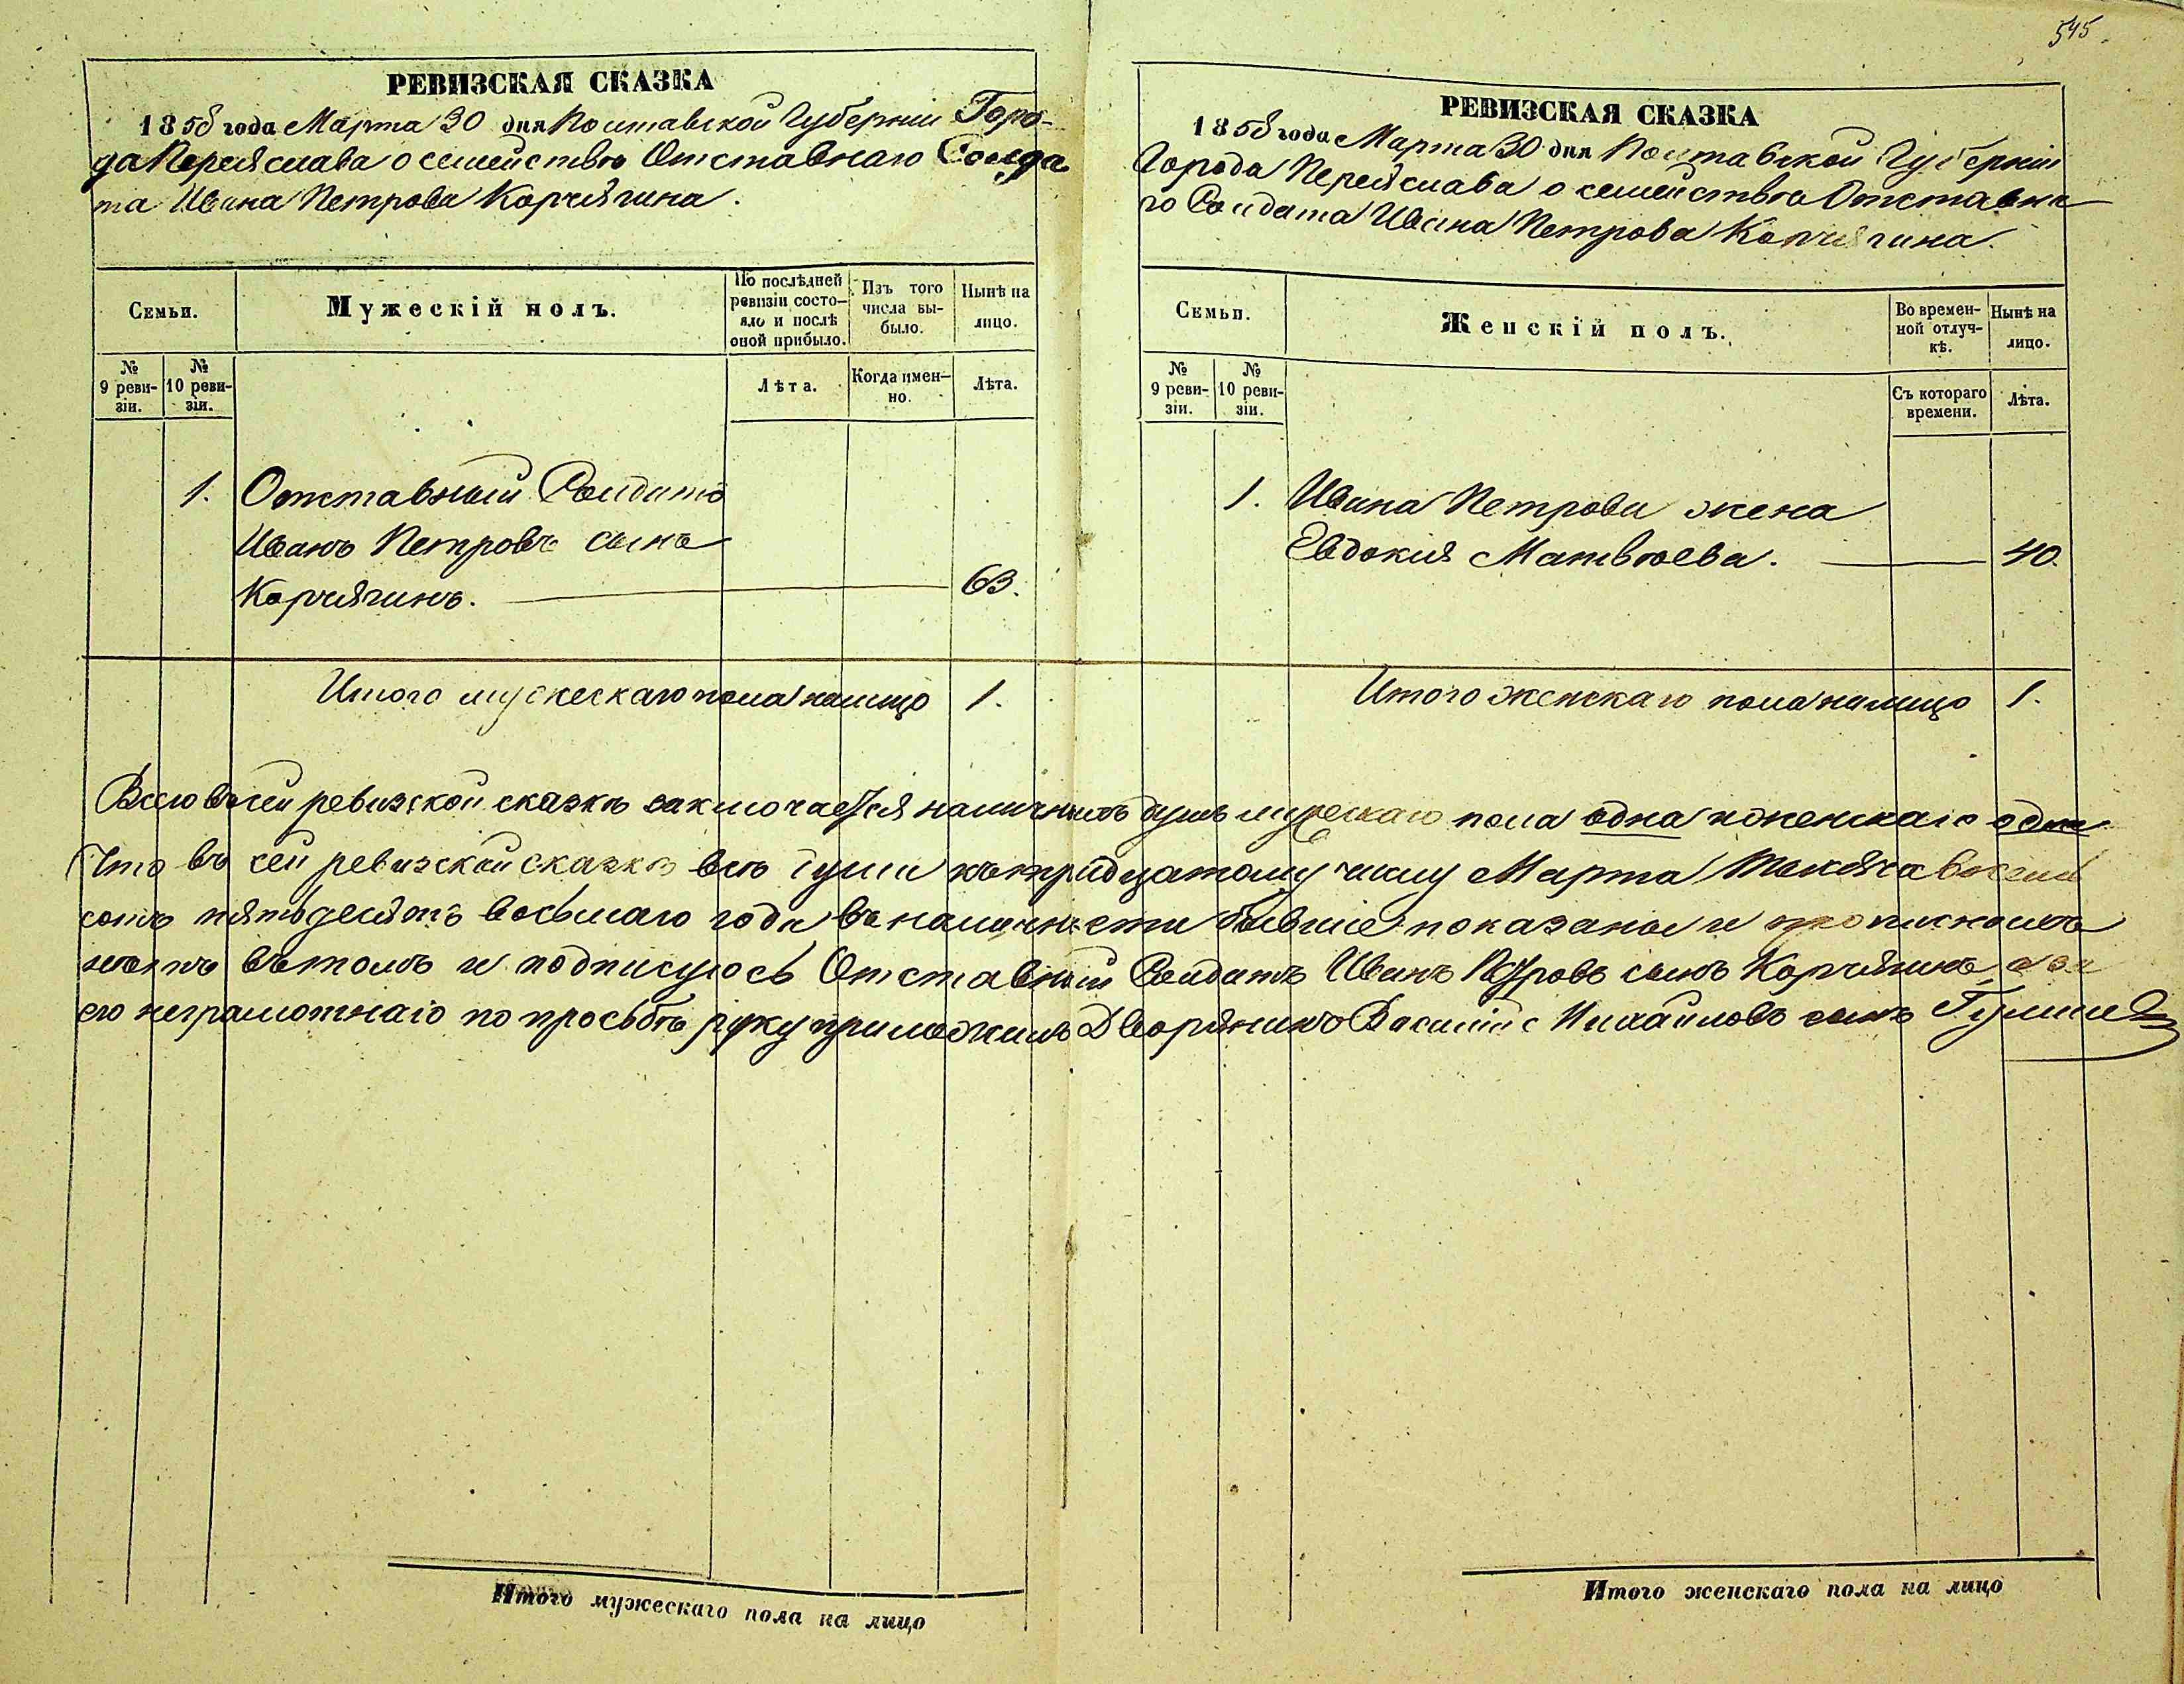 545.
РЕВИЗСКАЯ СКАЗКА
1858 года Марта 30 дня Полтавской Губерніи Горо-
да Переяслава о семействѣ Отставнаго Солда
та Ивана Петрова Корчягина.
Семьи.
Мужескій полъ.
По послѣдней ревизіи состо-
яло и послѣ оной прибыло.
Изъ того числа вы-
было.
Нынѣ на лицо.
№ 9 реви-
зіи.
№ 10 реви-
зіи.
Лѣта.
Когда имен-
но.
Лѣта.
1. Отставный Солдатъ
Иванъ Петровъ сынъ
Корчягинъ. 63.
Итого мужескаго пола налицо 1.
РЕВИЗСКАЯ СКАЗКА
1858 года Марта 30 дня Полтавской Губерніи
Города Переяслава о семействѣ Отставна
го Солдата Ивана Петрова Корчягина.
Семьи.
Женскій полъ.
Во времен-
ной отлуч-
кѣ.
Нынѣ на лицо.
№ 9 реви-
зіи.
№ 10 реви-
зіи.
Съ котораго времени.
Лѣта.
1. Ивана Петрова жена
Евдокия Матвѣева. 40.
Итого женскаго пола налицо 1.
Всего въ сей ревизской сказкѣ заключается наличныхъ душъ мужескаго пола одна и женскаго одна
Что въ сей ревизской сказкѣ всѣ души къ тридцатому числу Марта тысяча восемь
сотъ пятьдесятъ восьмаго года въ наличности бывшіе показаны и прописныхъ
нѣтъ въ томъ и подписуюсь Отставный Солдатъ Иванъ Петровъ сынъ Корчягинъ, а за
его неграмотнаго по просьбѣ руку приложилъ Дворянинъ Василій Михайловъ сынъ
Итого мужескаго пола на лицо
Итого женскаго пола на лицо